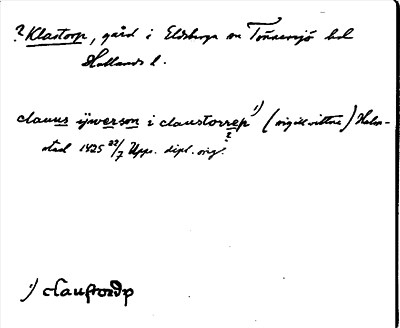 ? Klastorp, gård i Eldsberga sn Tönnersjö hd
Hallands l.
clauus ÿwerson i claustorrep ¹) (sigillvittne) Halm-
stad 1425 22/7 Upps. dipl. orig.
?
¹) claustordp